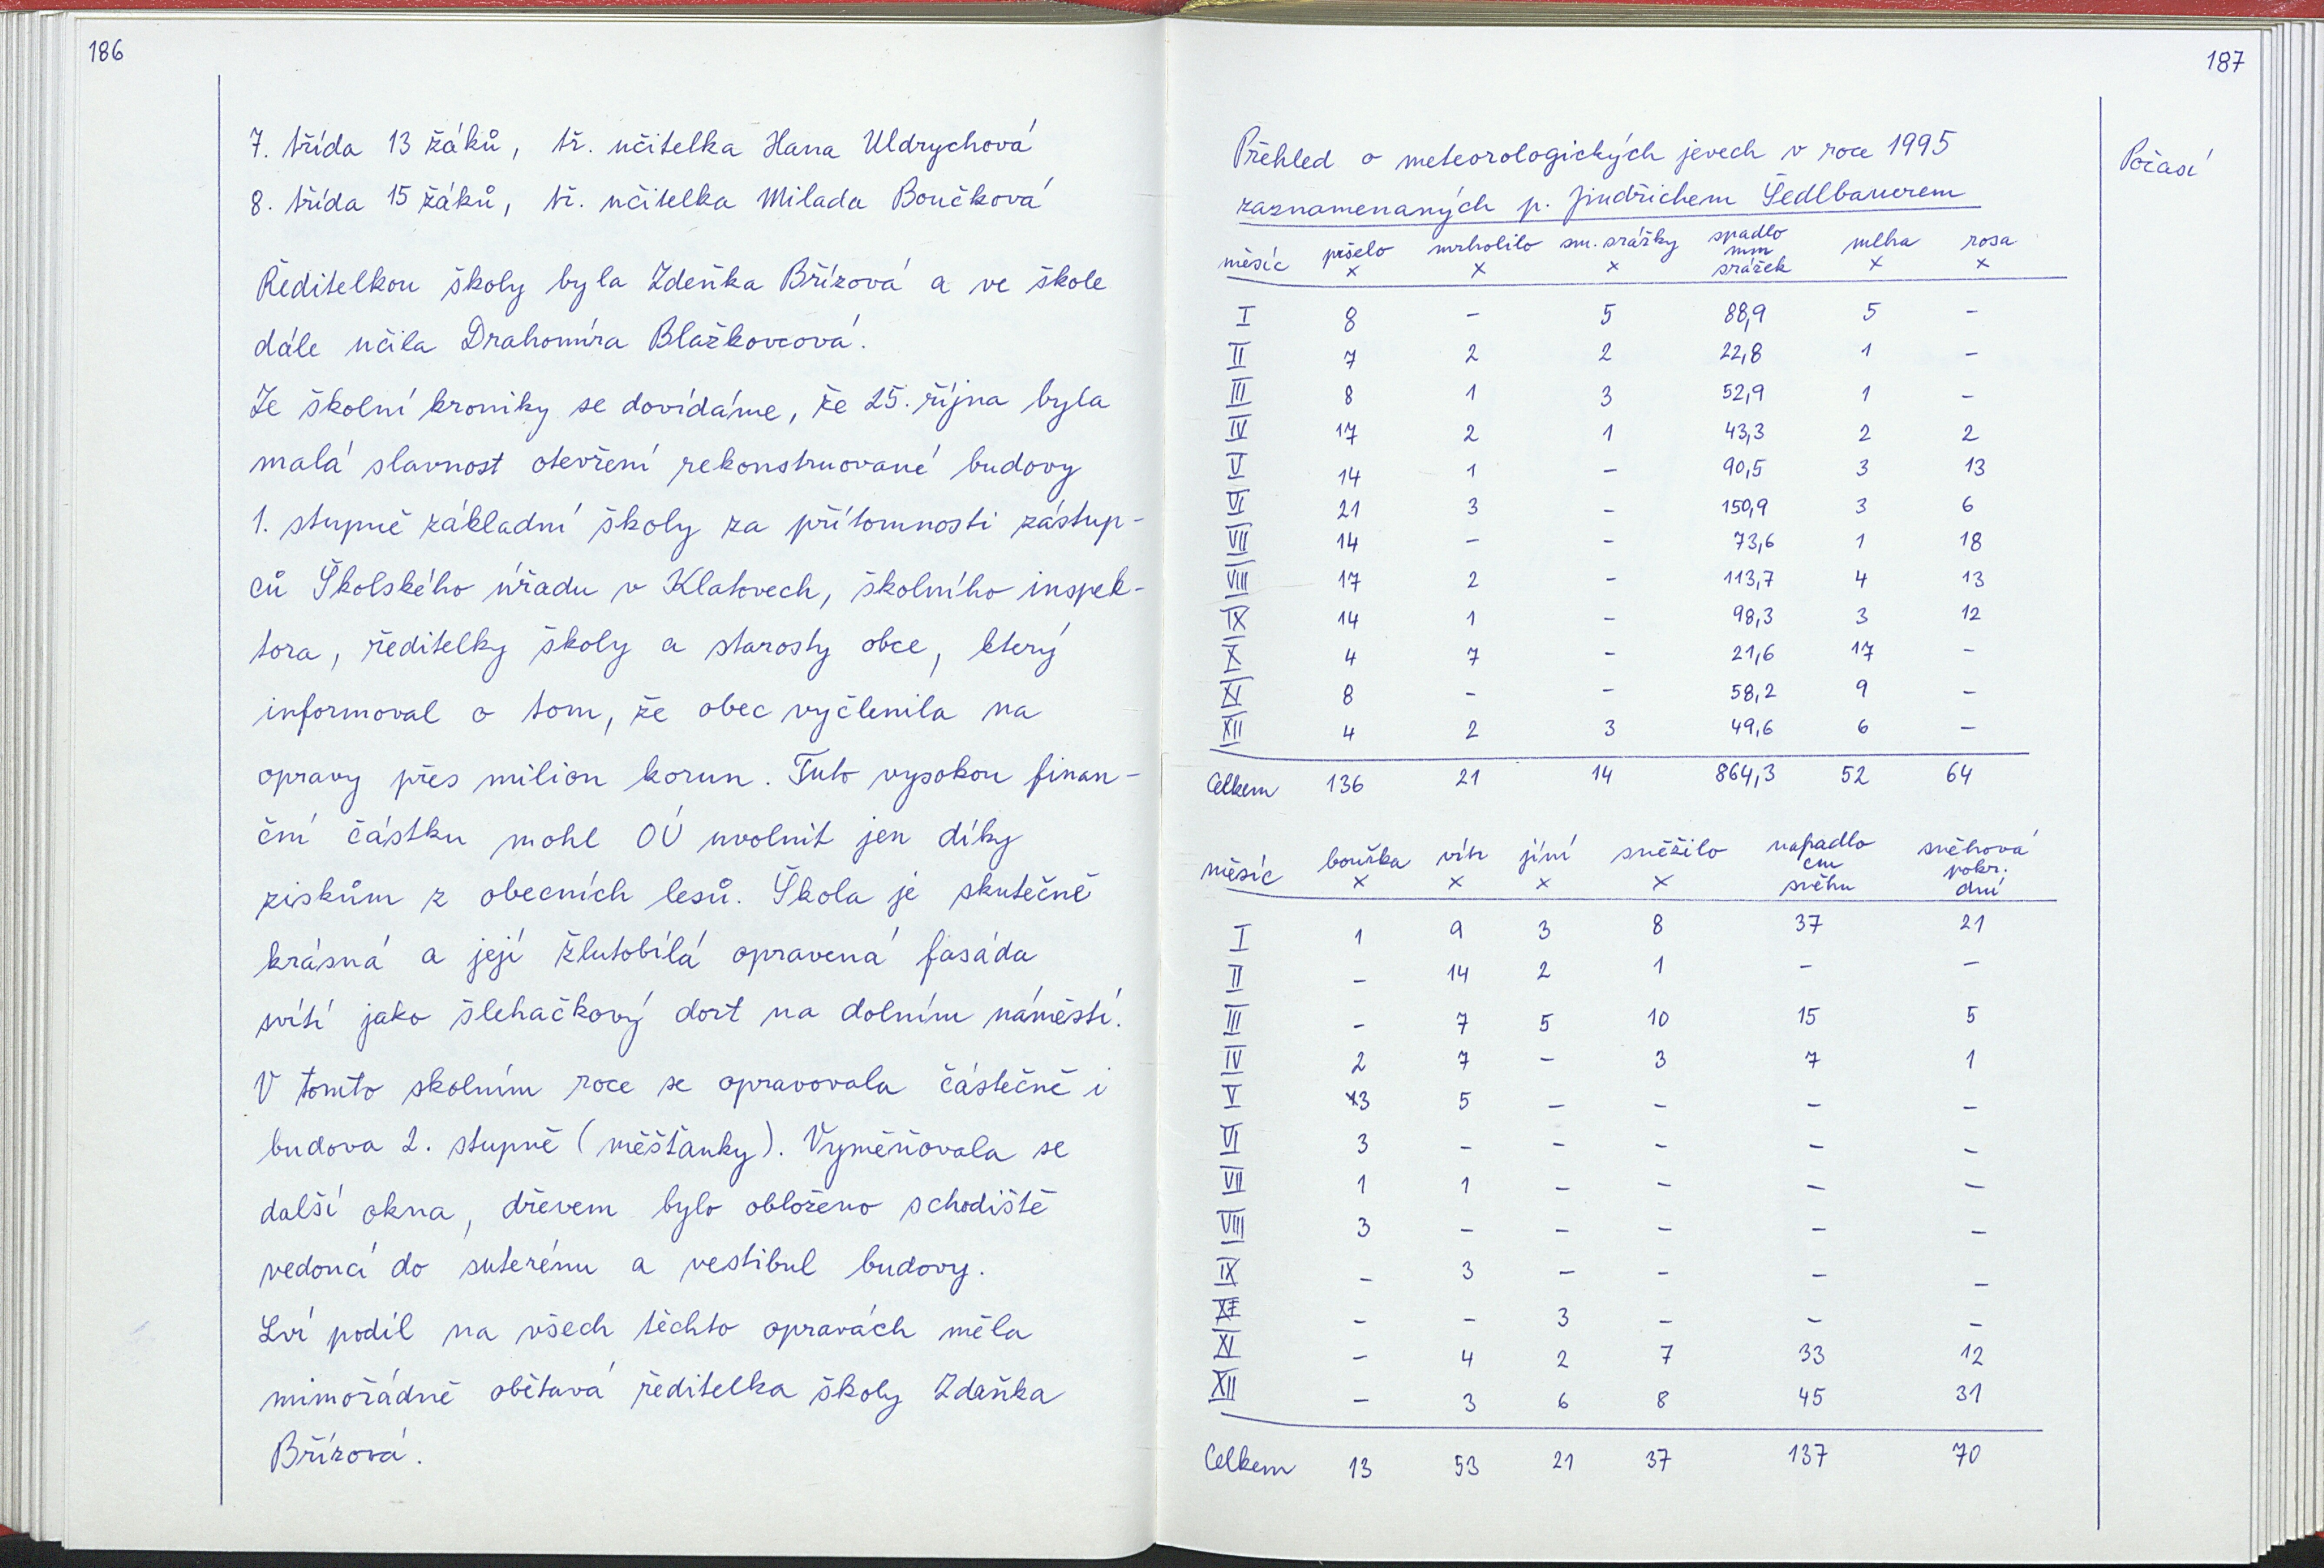 186
7. třída 13 žáků, tř. učitelka Hana Uldrychová
8. třída 15 žáků, tř. učitelka Milada Boučková
Ředitelkou školy byla Zdeňka Břízová a ve škole
dále učila Drahomíra Blažkovcová.
Ze školní kroniky se dovídáme, že 25. října byla
malá slavnost otevření rekonstruované budovy
1. stupně základní školy za přítomnosti zástup-
ců Školského úřadu v Klatovech, školního inspek-
tora, ředitelky školy a starosty obce, který
informoval o tom, že obec vyčlenila na
opravy přes milion korun. Tuto vysokou finan-
ční částku mohl OÚ uvolnit jen díky
ziskům z obecních lesů. Škola je skutečně
krásná a její žlutobílá opravená fasáda
svítí jako šlehačkový dort na dolním náměstí.
V tomto skolním roce se opravovala částečně i
budova 2. stupně (měšťanky). Vyměňovala se
další okna, dřevem bylo obloženo schodiště
vedoucí do suterénu a vestibul budovy.
Lví podíl na všech těchto opravách měla
mimořádně obětavá ředitelka školy Zdeňka
Břízová.
187
Počasí
Přehled o meteorologických jevech v roce 1995
zaznamenaných p. Jindřichem Šedlbauerem
měsíc pršelo x mrholilo x sm. srážky x spadlo mm srážek mlha x rosa x
I 8 - 5 88,9 5 -
II 7 2 2 22,8 1 -
III 8 1 3 52,9 1 -
IV 17 2 1 43,3 2 2
V 14 1 - 90,5 3 13
VI 21 3 - 150,9 3 6
VII 14 - - 73,6 1 18
VIII 17 2 - 113,7 4 13
IX 14 1 - 98,3 3 12
X 4 7 - 21,6 17 -
XI 8 - - 58,2 9 -
XII 4 2 3 49,6 6 -
Celkem 136 21 14 864,3 52 64
měsíc bouřka x vítr x jíní x sněžilo x napadlo cm sněhu sněhová pokr. dní
I 1 9 3 8 37 21
II - 14 2 1 - -
III - 7 5 10 15 5
IV 2 7 - 3 7 1
V 3 5 - - - -
VI 3 - - - - -
VII 1 1 - - - -
VIII 3 - - - - -
IX - 3 - - - -
X - - 3 - - -
XI - 4 2 7 33 12
XII - 3 6 8 45 31
Celkem 13 53 21 37 137 70